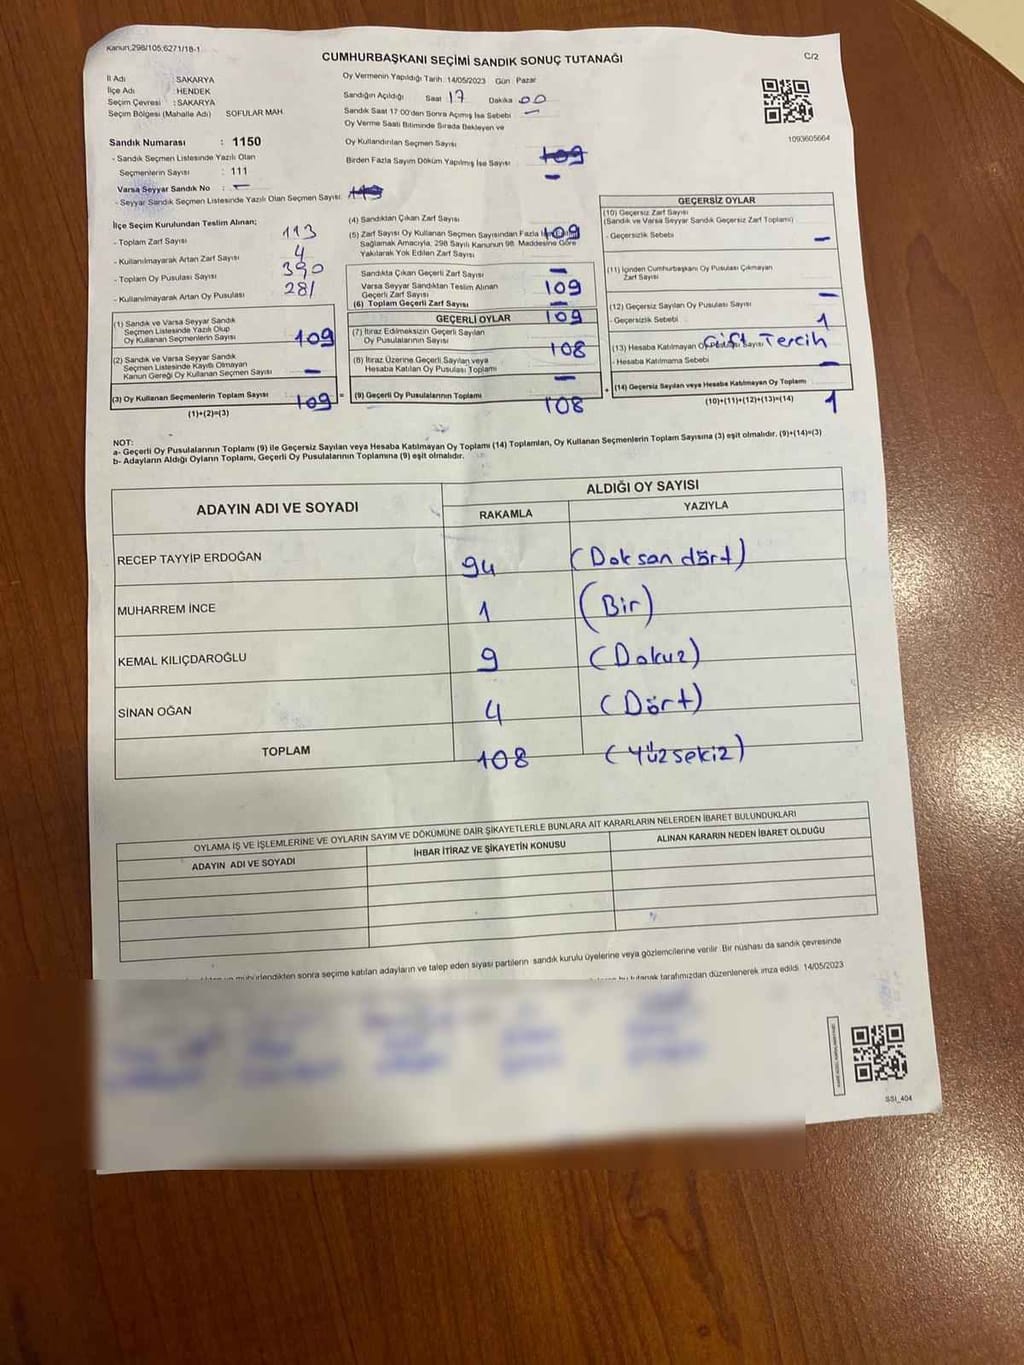 Kanun;298/105;6271/18-1
C/2
CUMHURBAŞKANI SEÇİMİ SANDIK SONUÇ TUTANAĞI
İl Adı : SAKARYA
İlçe Adı : HENDEK
Seçim Çevresi : SAKARYA
Seçim Bölgesi (Mahalle Adı) SOFULAR MAH.
Oy Vermenin Yapıldığı Tarih: 14/05/2023 Gün : Pazar
Sandığın Açıldığı Saat 17 Dakika 00
Sandık Saat 17:00'den Sonra Açımış İse Sebebi —
Oy Verme Saati Bitiminde Sırada Bekleyen ve
Oy Kullandırılan Seçmen Sayısı
Birden Fazla Sayım Döküm Yapılmış İse Sayısı —
1093605664
Sandık Numarası : 1150
- Sandık Seçmen Listesinde Yazılı Olan
Seçmenlerin Sayısı : 111
Varsa Seyyar Sandık No : —
- Seyyar Sandık Seçmen Listesinde Yazılı Olan Seçmen Sayısı
İlçe Seçim Kurulundan Teslim Alınan;
- Toplam Zarf Sayısı 113
- Kullanılmayarak Artan Zarf Sayısı 4
- Toplam Oy Pusulası Sayısı 390
- Kullanılmayarak Artan Oy Pusulası 281
(1) Sandık ve Varsa Seyyar Sandık
Seçmen Listesinde Yazılı Olup
Oy Kullanan Seçmenlerin Sayısı 109
(2) Sandık ve Varsa Seyyar Sandık
Seçmen Listesinde Kayıtlı Olmayan
Kanun Gereği Oy Kullanan Seçmen Sayısı —
(3) Oy Kullanan Seçmenlerin Toplam Sayısı 109 =
(1)+(2)=(3)
(4) Sandıktan Çıkan Zarf Sayısı 109
(5) Zarf Sayısı Oy Kullanan Seçmen Sayısından Fazla
Sağlamak Amacıyla, 298 Sayılı Kanunun 98. Maddesine Göre
Yakılarak Yok Edilen Zarf Sayısı —
Sandıkta Çıkan Geçerli Zarf Sayısı 109
Varsa Seyyar Sandıktan Teslim Alınan
Geçerli Zarf Sayısı —
(6) Toplam Geçerli Zarf Sayısı 109
GEÇERLİ OYLAR
(7) İtiraz Edilmeksizin Geçerli Sayılan
Oy Pusulalarının Sayısı 108
(8) İtiraz Üzerine Geçerli Sayılan veya
Hesaba Katılan Oy Pusulası Toplamı —
(9) Geçerli Oy Pusulalarının Toplamı 108 +
GEÇERSİZ OYLAR
(10) Geçersiz Zarf Sayısı
(Sandık ve Varsa Seyyar Sandık Geçersiz Zarf Toplamı)
- Geçersizlik Sebebi —
(11) İçinden Cumhurbaşkanı Oy Pusulası Çıkmayan
Zarf Sayısı —
(12) Geçersiz Sayılan Oy Pusulası Sayısı 1
- Geçersizlik Sebebi Çift Tercih
(13) Hesaba Katılmayan Oy Pusulası Sayısı —
- Hesaba Katılmama Sebebi
(14) Geçersiz Sayılan veya Hesaba Katılmayan Oy Toplamı 1
(10)+(11)+(12)+(13)=(14)
NOT:
a- Geçerli Oy Pusulalarının Toplamı (9) ile Geçersiz Sayılan veya Hesaba Katılmayan Oy Toplamı (14) Toplamları, Oy Kullanan Seçmenlerin Toplam Sayısına (3) eşit olmalıdır. (9)+(14)=(3)
b- Adayların Aldığı Oyların Toplamı, Geçerli Oy Pusulalarının Toplamına (9) eşit olmalıdır.
ADAYIN ADI VE SOYADI
ALDIĞI OY SAYISI
RAKAMLA YAZIYLA
RECEP TAYYİP ERDOĞAN 94 (Doksan dört)
MUHARREM İNCE 1 (Bir)
KEMAL KILIÇDAROĞLU 9 (Dokuz)
SİNAN OĞAN 4 (Dört)
TOPLAM 108 (Yüzsekiz)
OYLAMA İŞ VE İŞLEMLERİNE VE OYLARIN SAYIM VE DÖKÜMÜNE DAİR ŞİKAYETLERLE BUNLARA AİT KARARLARIN NELERDEN İBARET BULUNDUKLARI
ADAYIN ADI VE SOYADI İHBAR İTİRAZ VE ŞİKAYETİN KONUSU ALINAN KARARIN NEDEN İBARET OLDUĞU
mühürlendikten sonra seçime katılan adayların ve talep eden siyasi partilerin sandık kurulu üyelerine veya gözlemcilerine verilir. Bir nüshası da sandık çevresinde
bu tutanak tarafımızdan düzenlenerek imza edildi. 14/05/2023
SSI_404